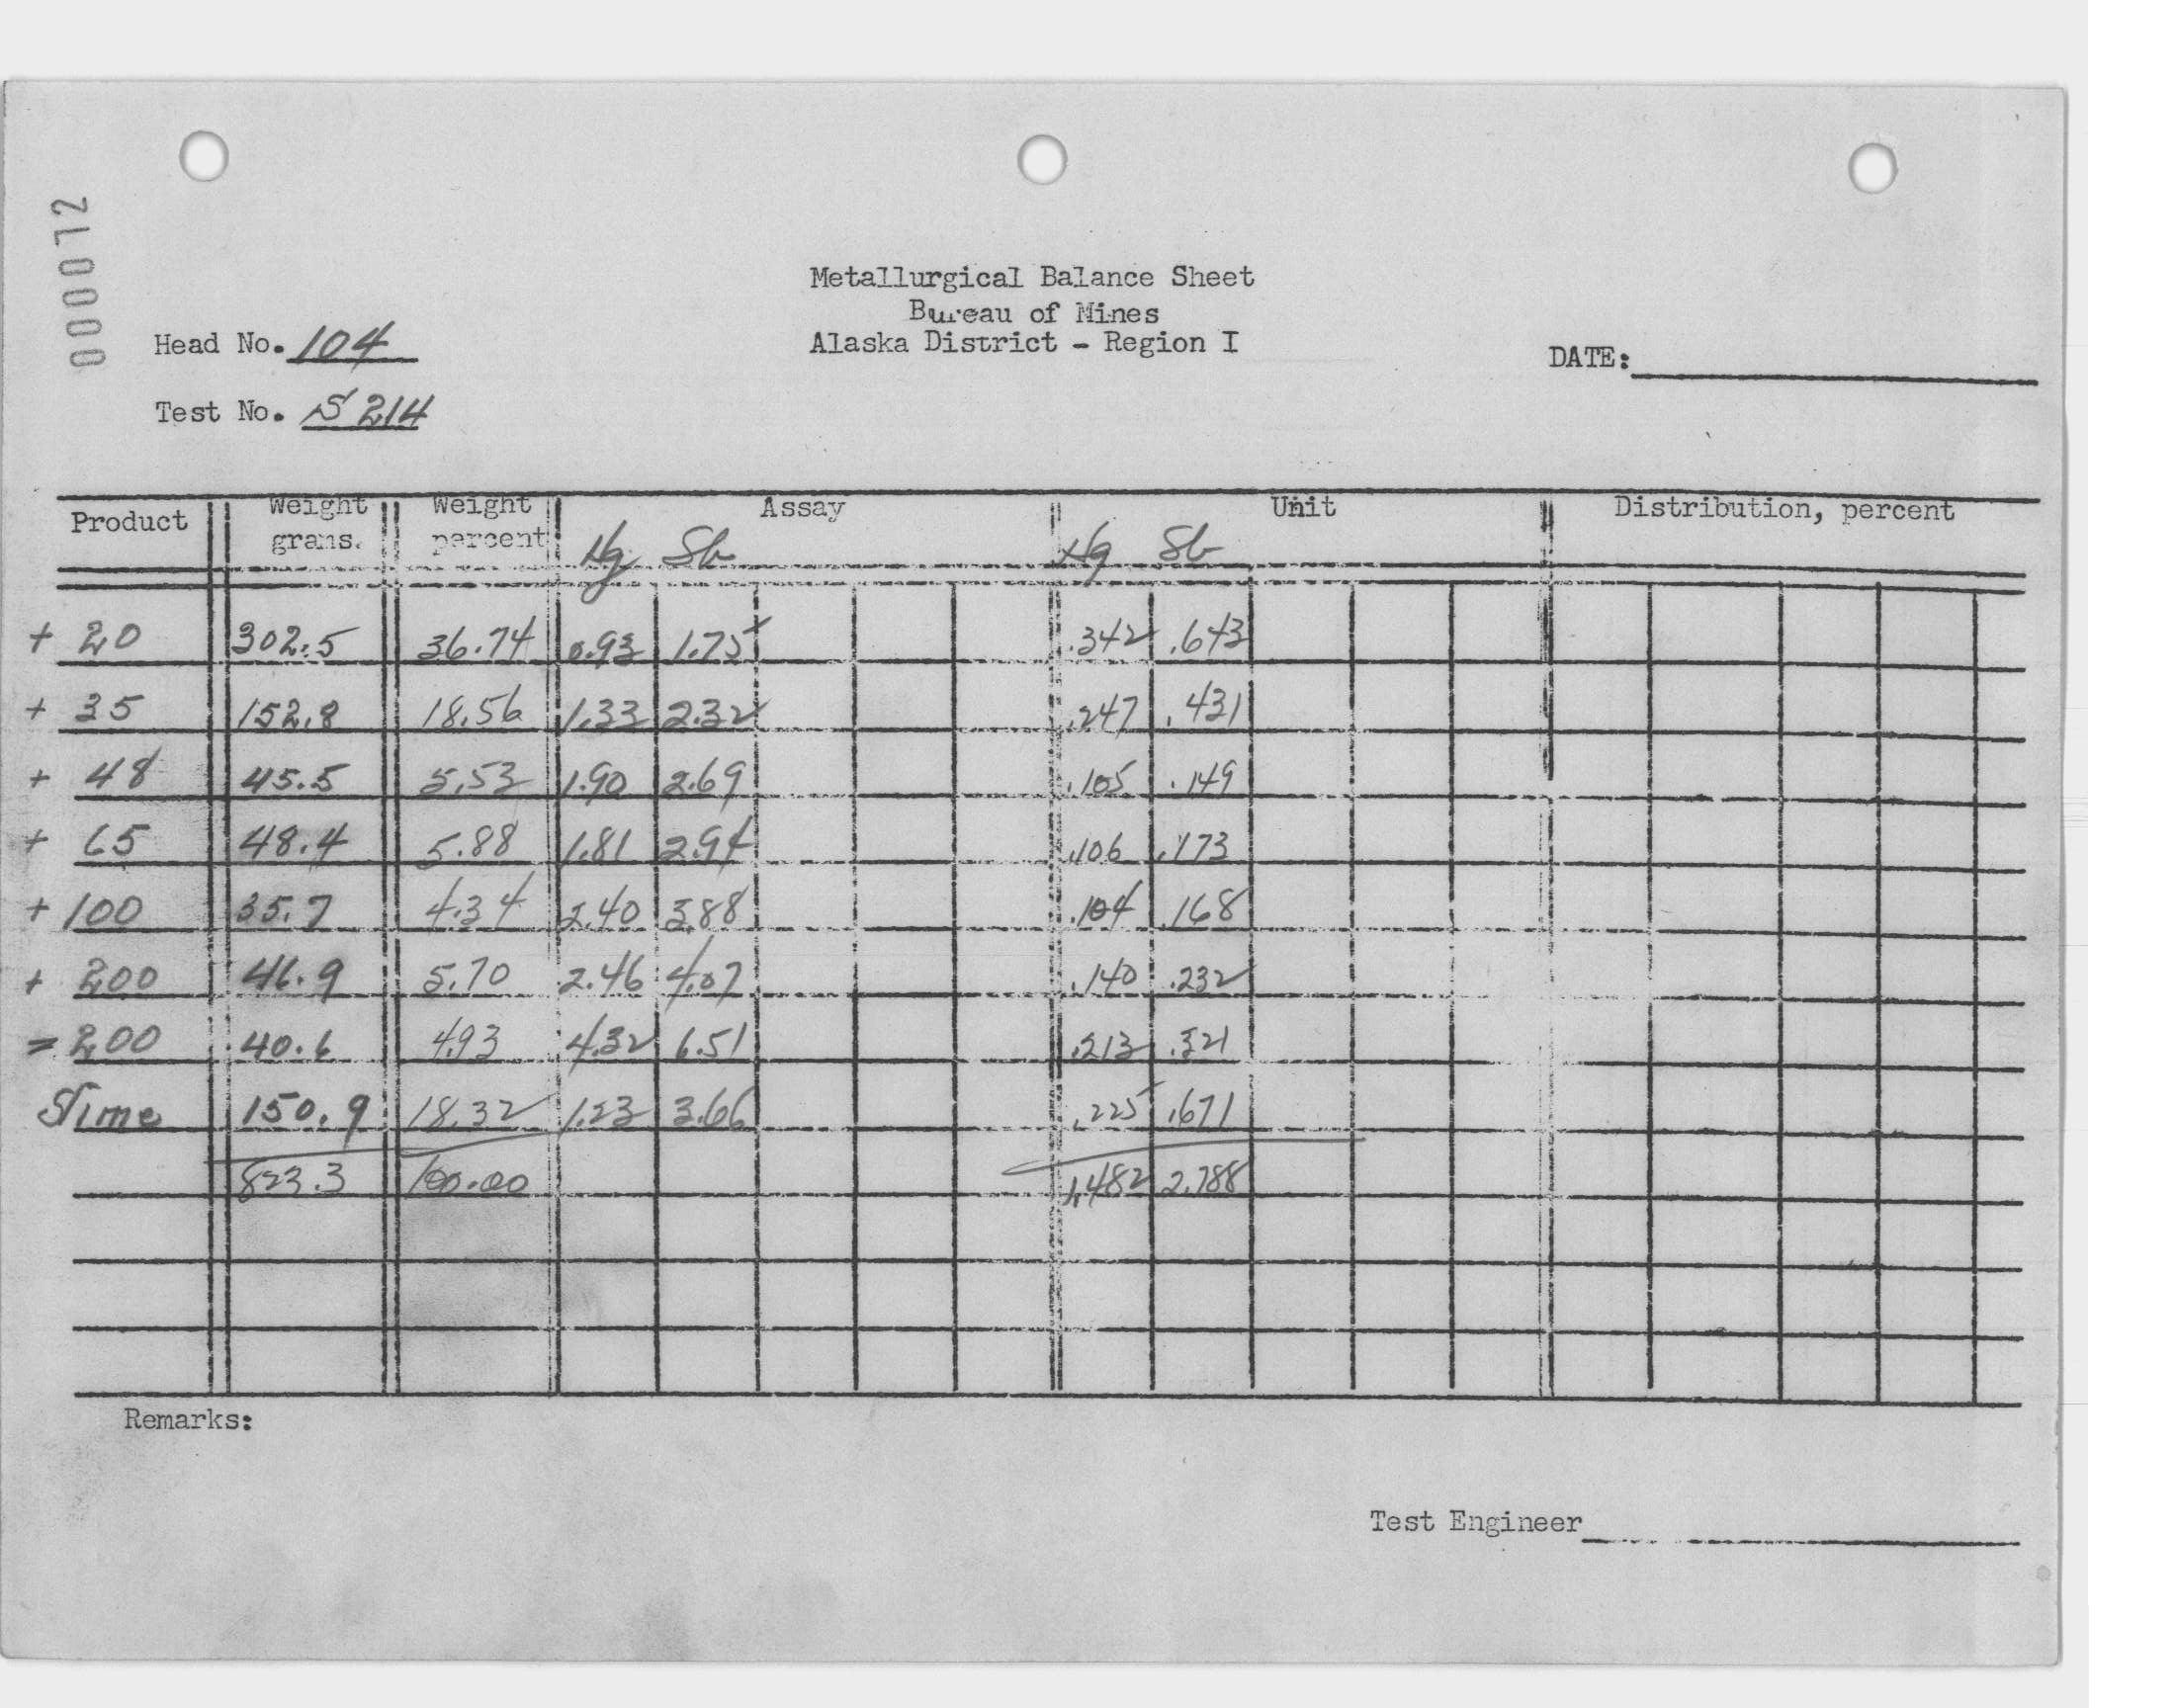 000072
Metallurgical Balance Sheet
Bureau of Mines
Alaska District - Region I
Head No. 104
DATE:
Test No. S 214
Product Weight grams. Weight percent Assay Unit Distribution, percent
Hg Sb Hg Sb
+ 20 302.5 36.74 0.93 1.75 .342 .643
+ 35 152.8 18.56 1.33 2.32 .247 .431
+ 48 45.5 5.53 1.90 2.69 .105 .149
+ 65 48.4 5.88 1.81 2.94 .106 .173
+ 100 35.7 4.34 2.40 3.88 .104 .168
+ 200 46.9 5.70 2.46 4.07 .140 .232
- 200 40.6 4.93 4.32 6.51 .213 .321
Slime 150.9 18.32 1.23 3.66 .225 .671
823.3 100.00 1.482 2.788
Remarks:
Test Engineer